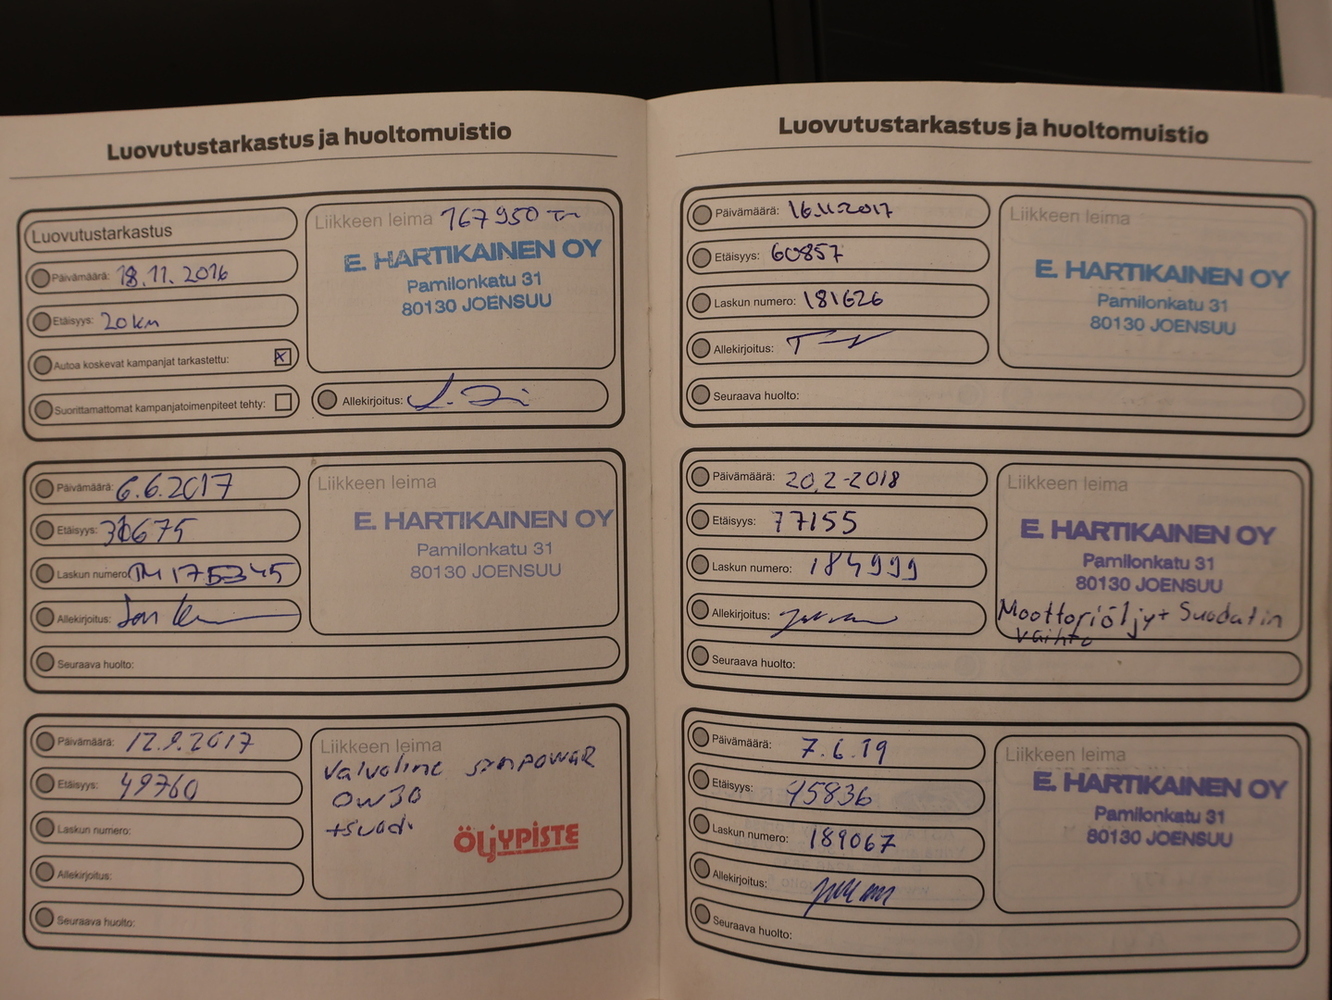 Luovutustarkastus ja huoltomuistio
Luovutustarkastus
Päivämäärä: 18.11.2016
Etäisyys: 20km
Autoa koskevat kampanjat tarkastettu: X
Suorittamattomat kampanjatoimenpiteet tehty:
Liikkeen leima 167950
E. HARTIKAINEN OY
Pamilonkatu 31
80130 JOENSUU
Allekirjoitus:
Päivämäärä: 6.6.2017
Etäisyys: 30675
Laskun numero: 175345
Allekirjoitus:
Seuraava huolto:
Liikkeen leima
E. HARTIKAINEN OY
Pamilonkatu 31
80130 JOENSUU
Päivämäärä: 12.9.2017
Etäisyys: 49760
Laskun numero:
Allekirjoitus:
Seuraava huolto:
Liikkeen leima
Valvoline SYNPOWER
0W30
+suod.
ÖLJYPISTE
Luovutustarkastus ja huoltomuistio
Päivämäärä: 16.11.2017
Etäisyys: 60857
Laskun numero: 181626
Allekirjoitus:
Seuraava huolto:
Liikkeen leima
E. HARTIKAINEN OY
Pamilonkatu 31
80130 JOENSUU
Päivämäärä: 20.2-2018
Etäisyys: 77155
Laskun numero: 184999
Allekirjoitus:
Seuraava huolto:
Liikkeen leima
E. HARTIKAINEN OY
Pamilonkatu 31
80130 JOENSUU
Moottoriöljy+ Suodatin
Vaihto
Päivämäärä: 7.6.19
Etäisyys: 95836
Laskun numero: 189067
Allekirjoitus:
Seuraava huolto:
Liikkeen leima
E. HARTIKAINEN OY
Pamilonkatu 31
80130 JOENSUU